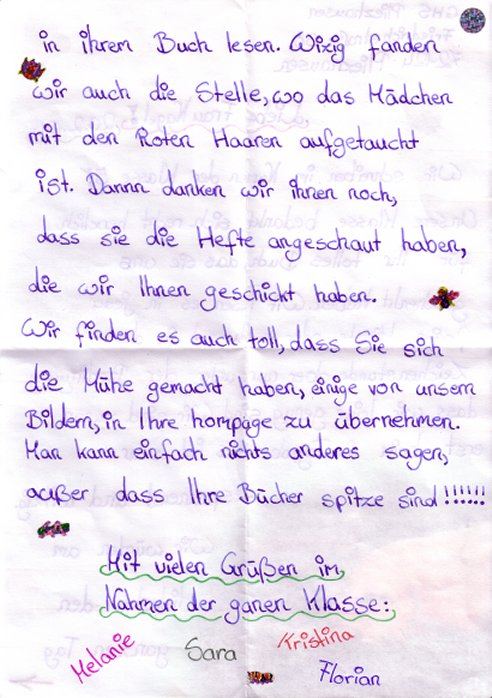 in ihrem Buch lesen. Wizig fanden
wir auch die Stelle, wo das Mädchen
mit den Roten Haaren aufgetaucht
ist. Dannn danken wir ihnen noch,
dass sie die Hefte angeschaut haben,
die wir Ihnen geschickt haben.
Wir finden es auch toll, dass Sie sich
die Mühe gemacht haben, einige von unsern
Bildern, in Ihre hompage zu übernehmen.
Man kann einfach nichts anderes sagen,
außer dass Ihre Bücher spitze sind!!!!!!
Mit vielen Grüßen im
Nahmen der ganen Klasse:
Melanie Sara Kristina
Florian